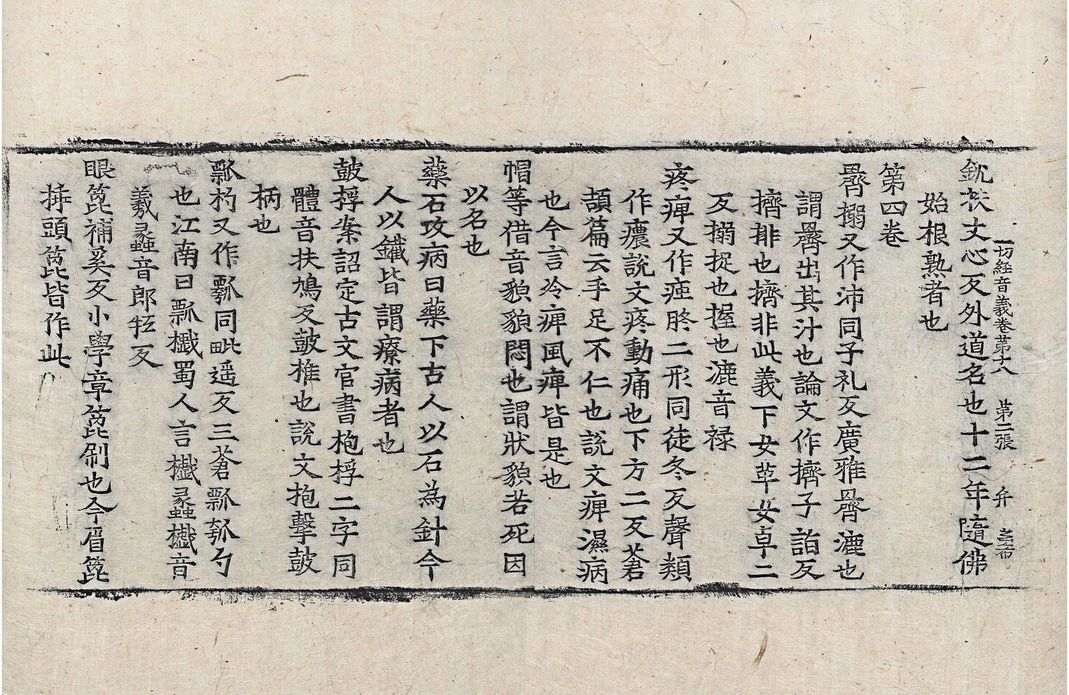 一切經音義卷第十八 第二張 弁
釻抶丈心反外道名也十二年隨佛
始根熟者也
第四卷
㬹搦又作沛同子礼反廣雅㬹漉也
謂㬹出其汁也論文作擠子詣反
擠排也擠非此義下女革女卓二
反搦捉也握也漉音禄
疼痺又作痋胮二形同徒冬反聲類
作癑說文疼動痛也下方二反蒼
頡篇云手足不仁也說文痺濕病
也今言冷痺風痺皆是也
帽等借音貌貌悶也謂狀貌若死因
以名也
藥石攻病曰藥下古人以石為針今
人以鐵皆謂療病者也
鼓桴案詔定古文官書枹桴二字同
體音扶鳩反鼓椎也說文抱擊鼓
柄也
瓢杓又作瓢同毗遥反三蒼瓢瓠勺
也江南曰瓢㰕蜀人言㰕蠡㰕音
羲蠡音郎𤘽反
眼篦補奚反小學章篦刷也今眉篦
揷頭篦皆作此